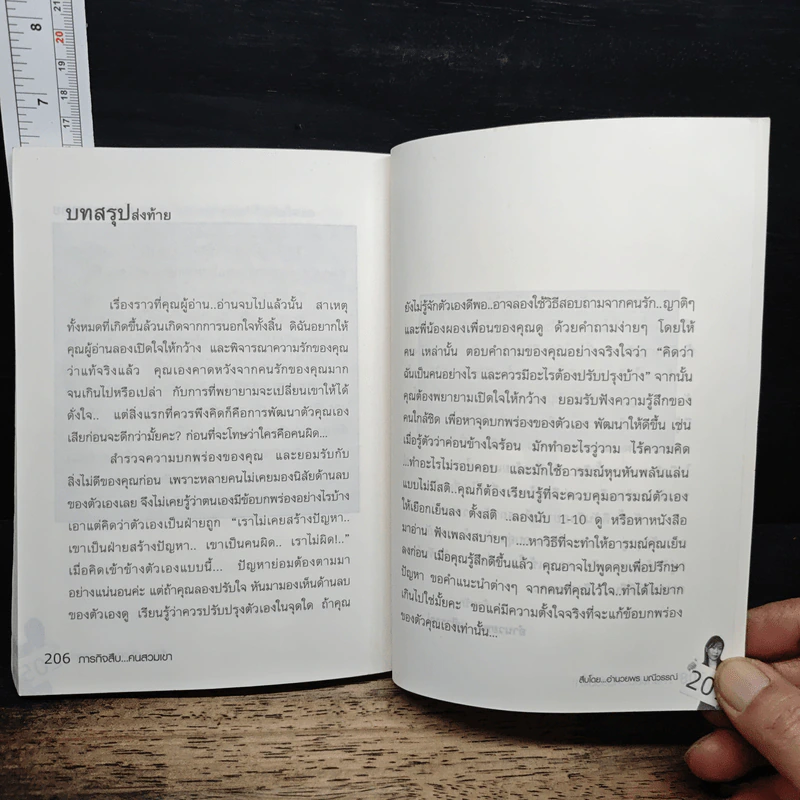 8
7
20
19
18
17
บทสรุปส่งท้าย
เรื่องราวที่คุณผู้อ่าน..อ่านจบไปแล้วนั้น สาเหตุ
ทั้งหมดที่เกิดขึ้นล้วนเกิดจากการนอกใจทั้งสิ้น ดิฉันอยากให้
คุณผู้อ่านลองเปิดใจให้กว้าง และพิจารณาความรักของคุณ
ว่าแท้จริงแล้ว คุณเองคาดหวังจากคนรักของคุณมาก
จนเกินไปหรือเปล่า กับการที่พยายามจะเปลี่ยนเขาให้ได้
ดั่งใจ.. แต่สิ่งแรกที่ควรพึงคิดก็คือการพัฒนาตัวคุณเอง
เสียก่อนจะดีกว่ามั้ยคะ? ก่อนที่จะโทษว่าใครคือคนผิด...
สำรวจความบกพร่องของคุณ และยอมรับกับ
สิ่งไม่ดีของคุณก่อน เพราะหลายคนไม่เคยมองนิสัยด้านลบ
ของตัวเองเลย จึงไม่เคยรู้ว่าตนเองมีข้อบกพร่องอย่างไรบ้าง
เอาแต่คิดว่าตัวเองเป็นฝ่ายถูก “เราไม่เคยสร้างปัญหา..
เขาเป็นฝ่ายสร้างปัญหา.. เขาเป็นคนผิด.. เราไม่ผิด!..”
เมื่อคิดเข้าข้างตัวเองแบบนี้... ปัญหาย่อมต้องตามมา
อย่างแน่นอนค่ะ แต่ถ้าคุณลองปรับใจ หันมามองเห็นด้านลบ
ของตัวเองดู เรียนรู้ว่าควรปรับปรุงตัวเองในจุดใด ถ้าคุณ
206 ภารกิจสืบ...คนสวมเขา
ยังไม่รู้จักตัวเองดีพอ..อาจลองใช้วิธีสอบถามจากคนรัก..ญาติๆ
และพี่น้องผองเพื่อนของคุณดู ด้วยคำถามง่ายๆ โดยให้
คน เหล่านั้น ตอบคำถามของคุณอย่างจริงใจว่า “คิดว่า
ฉันเป็นคนอย่างไร และควรมีอะไรต้องปรับปรุงบ้าง” จากนั้น
คุณต้องพยายามเปิดใจให้กว้าง ยอมรับฟังความรู้สึกของ
คนใกล้ชิด เพื่อหาจุดบกพร่องของตัวเอง พัฒนาให้ดีขึ้น เช่น
เมื่อรู้ตัวว่าค่อนข้างใจร้อน มักทำอะไรวู่วาม ไร้ความคิด
...ทำอะไรไม่รอบคอบ และมักใช้อารมณ์หุนหันพลันแล่น
แบบไม่มีสติ..คุณก็ต้องเรียนรู้ที่จะควบคุมอารมณ์ตัวเอง
ให้เยือกเย็นลง ตั้งสติ ..ลองนับ 1-10 ดู หรือหาหนังสือ
มาอ่าน ฟังเพลงสบายๆ ....หาวิธีที่จะทำให้อารมณ์คุณเย็น
ลงก่อน เมื่อคุณรู้สึกดีขึ้นแล้ว คุณอาจไปพูดคุยเพื่อปรึกษา
ปัญหา ขอคำแนะนำต่างๆ จากคนที่คุณไว้ใจ..ทำได้ไม่ยาก
เกินไปใช่มั้ยคะ ขอแค่มีความตั้งใจจริงที่จะแก้ข้อบกพร่อง
ของตัวคุณเองเท่านั้น...
สืบโดย...อำนวยพร มณีวรรณ์
20